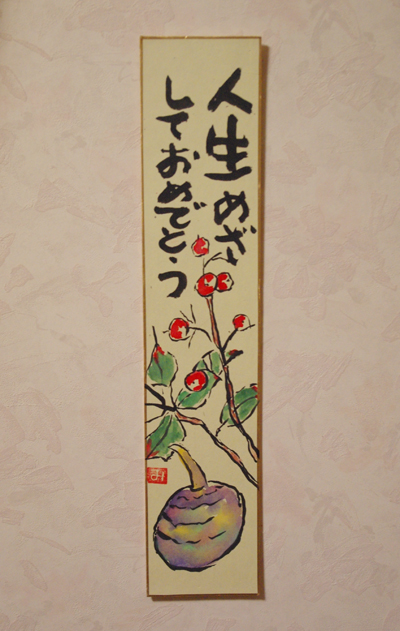 人生めざ
しておめでとう